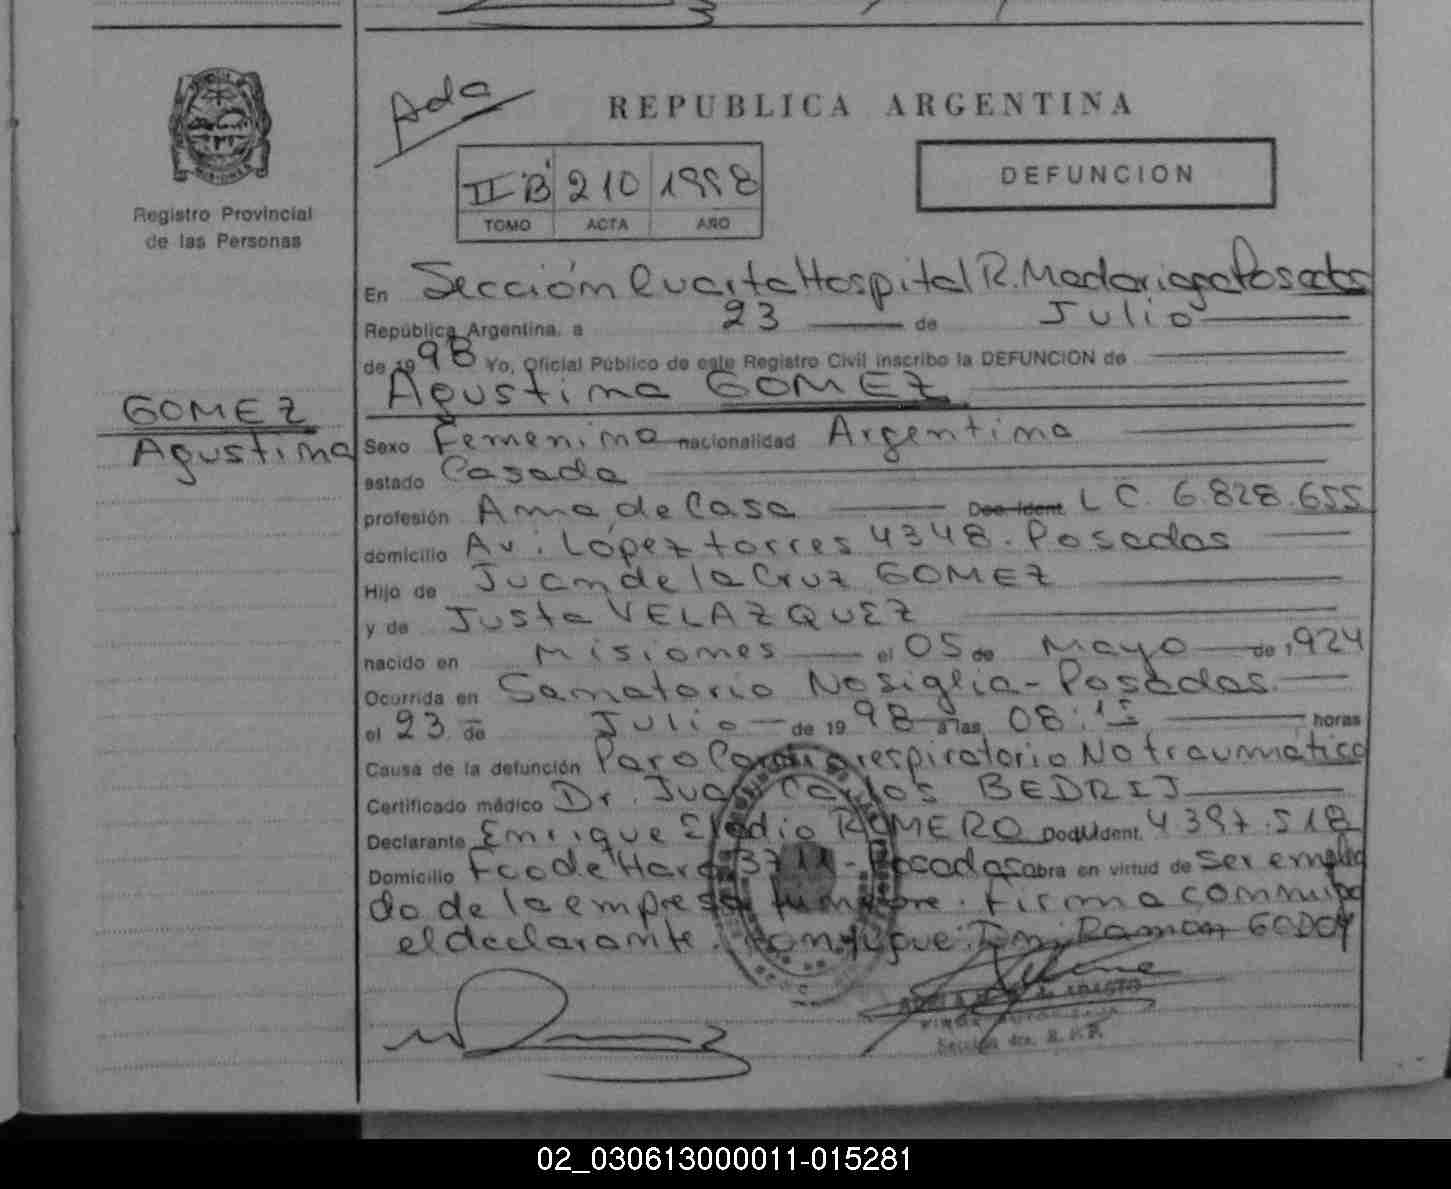 Ada
REPUBLICA ARGENTINA
II B 210 1998
TOMO ACTA AÑO
DEFUNCION
MISIONES
Registro Provincial
de las Personas
En Sección Cuarta Hospital R. Madariaga Posadas
República Argentina, a 23 de Julio
de 1998 Yo, Oficial Público de este Registro Civil inscribo la DEFUNCION de
Agustina GOMEZ
GOMEZ
Agustina
Sexo Femenino nacionalidad Argentina
estado Casada
profesión Ama de Casa Doc. Ident. L C. 6.828.655
domicilio Av. López torres 4348. Posadas
Hijo de Juan de la Cruz GOMEZ
y de Justa VELAZQUEZ
nacido en Misiones el 05 de Mayo de 1924
Ocurrida en Sanatorio Nosiglia - Posadas.
el 23 de Julio de 1998 a las 08:15 horas
Causa de la defunción Paro Cardiorespiratorio No traumático
Certificado médico Dr. Juan Carlos BEDRIJ
Declarante Enrique Eladio ROMERO Doc. Ident. 4 397.518
Domicilio Fco de Haro 3711 - Posadas obra en virtud de ser emplea
do de la empresa funebre. firma conmigo
el declarante. Ramon GODOY
Sección 4ta. R.P.P.
02_030613000011-015281